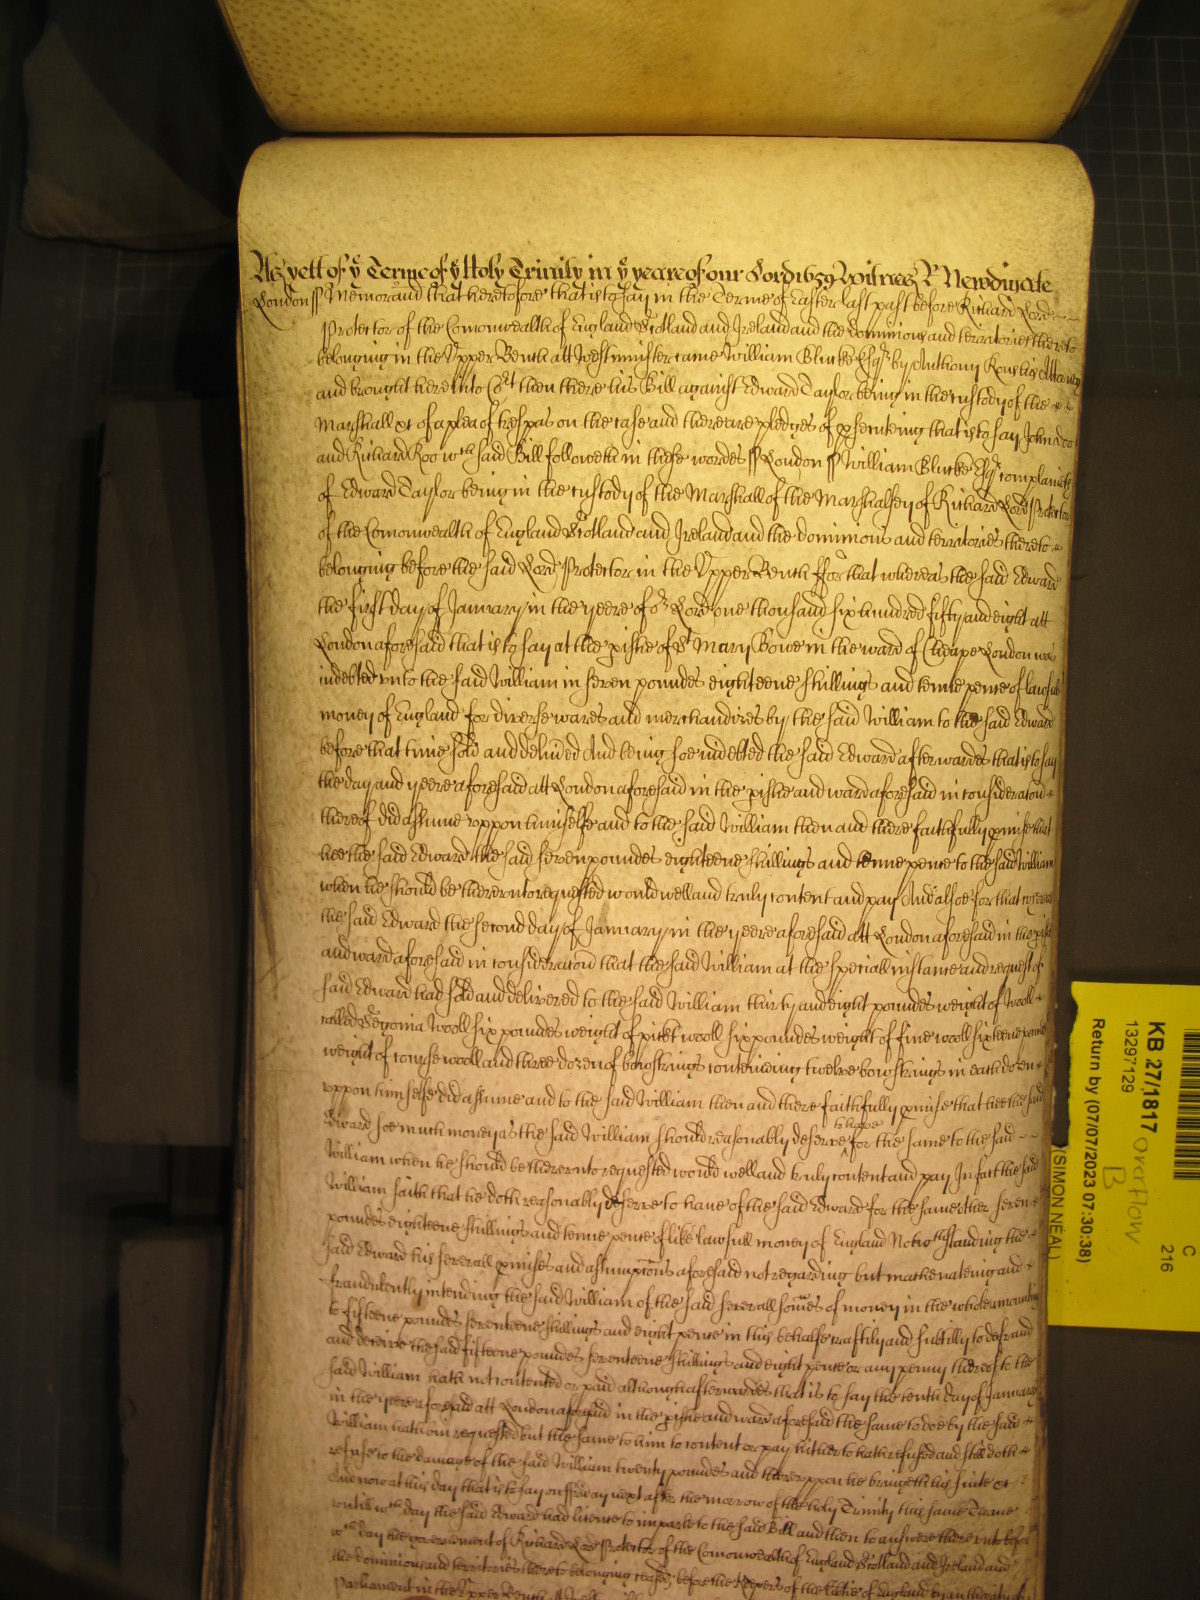 As yett of ye Terme of ye Holy Trinity in ye yeare of our Lord 1659 Witnes R Newdigate
London ss Memorand that heretofore that is to say in the Terme of Easter last past before Richard Lord
Protector of the Comonwealth of England Scotland and Ireland and the dominions and territories thereto
belonging in the Upper Bench att Westminster came William Blucke Esqr by Anthony Rous his Attorney
and brought here into Crt then there his Bill against Edward Taylor being in the custody of the
Marshall &c of a plea of trespas on the case and there are pledges of psecuteing that is to say John Doo
and Richard Roo wch said Bill followeth in these wordes ss London ss William Blucke Esqr complaineth
of Edward Taylor being in the custody of the Marshall of the Marshalsey of Richard Lord Protector
of the Comonwealth of England Scotland and Ireland and the dominions and territories thereto
belonging before the said Lord Protector in the Upper Bench ffor that whereas the said Edward
the first day of January in the yeere of or Lord one thousand six hundred fifty and eight att
London aforesaid that is to say at the pishe of St Mary Bowe in the ward of Cheape London was
indebted unto the said William in seven poundes eighteene shillings and tenne pence of lawfull
money of England for diverse wares and merchandizes by the said William to the said Edward
before that time sold and delived And being soe indebted the said Edward afterwardes that is to say
the day and yeere aforesaid att London aforesaid in the pishe and ward aforesaid in consideracon
thereof did assume uppon himselfe and to the said William then and there faithfully pmise that
hee the said Edward the said seven poundes eighteene shillings and tenne pence to the said William
when he should be thereunto requested would well and truly content and pay And alsoe for that
the said Edward the second day of January in the yeere aforesaid att London aforesaid in the pishe
and ward aforesaid in consideracon that the said William at the speciall instance and request of
said Edward had sold and delivered to the said William thirty and eight poundes weight of wooll
called Segonia wooll six poundes weight of pickt wooll six poundes weight of fine wooll sixteene poundes
weight of course wooll and three dozen of bowstrings conteining twelve bowstrings in each dozen
uppon himselfe did assume and to the said William then and there faithfully pmise that hee the said
Edward soe much money as the said William should reasonably deserve to have for the same to the said
William when he should be thereunto requested would well and truly content and pay In fact the said
William saith that he doth reasonably deserve to have of the said Edward for the same other seven
poundes eighteene shillings and tenne pence of like lawfull money of England Notwthstanding the
said Edward his severall pmises and assumptions aforesaid not regarding but machinateing and
fraudulently intending the said William of the said severall somes of money in the whole amounting
to fifteene poundes seventeene shillings and eight pence in this behalfe craftily and subtilly to defraud
and deceive the said fifteene poundes seventeene shillings and eight pence or any penny thereof to the
said William hath not contented or paid although afterwardes that is to say the tenth day of January
in the yeere aforesaid att London aforesaid in the pishe and ward aforesaid the same to doe by the said
William hath bin requested but the same to him to content or pay hitherto hath refused and still doth
refuse to the damage of the said William twenty poundes and thereuppon he bringeth his suite &c
And now at this day that is to say on ffryday next after the morrow of the holy Trinity this same Terme
untill wch day the said Edward had licence to imparle to the said Bill and then to answere thereunto before
wch day the governement of Richard Lord Protector of the Comonwealth of England Scotland and Ireland and
the dominions and territories thereto belonging ceased before the Keepers of the libtie of England by authority of
Parliament in the Upper Bench att
KB 27/1817
13297129
Return by (07/07/2023 07:30:38)
(SIMON NEAL)
C
216
Overflow
B